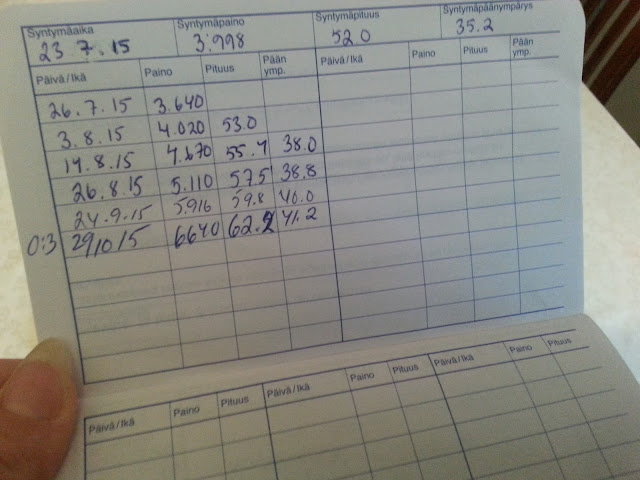 Syntymäaika Syntymäpaino Syntymäpituus Syntymäpäänympärys
23.7.15 3.998 52.0 35.2
Päivä/Ikä Paino Pituus Pään ymp. Päivä/Ikä Paino Pituus Pään ymp.
26.7.15 3.640
3.8.15 4.020 53.0
14.8.15 4.670 55.4 38.0
26.8.15 5.110 57.5 38.8
24.9.15 5.916 59.8 40.0
0:3 291015 6640 62.2 41.2
Päivä/Ikä Paino Pituus Päivä/Ikä Paino Pituus Päivä/Ikä Paino Pituus